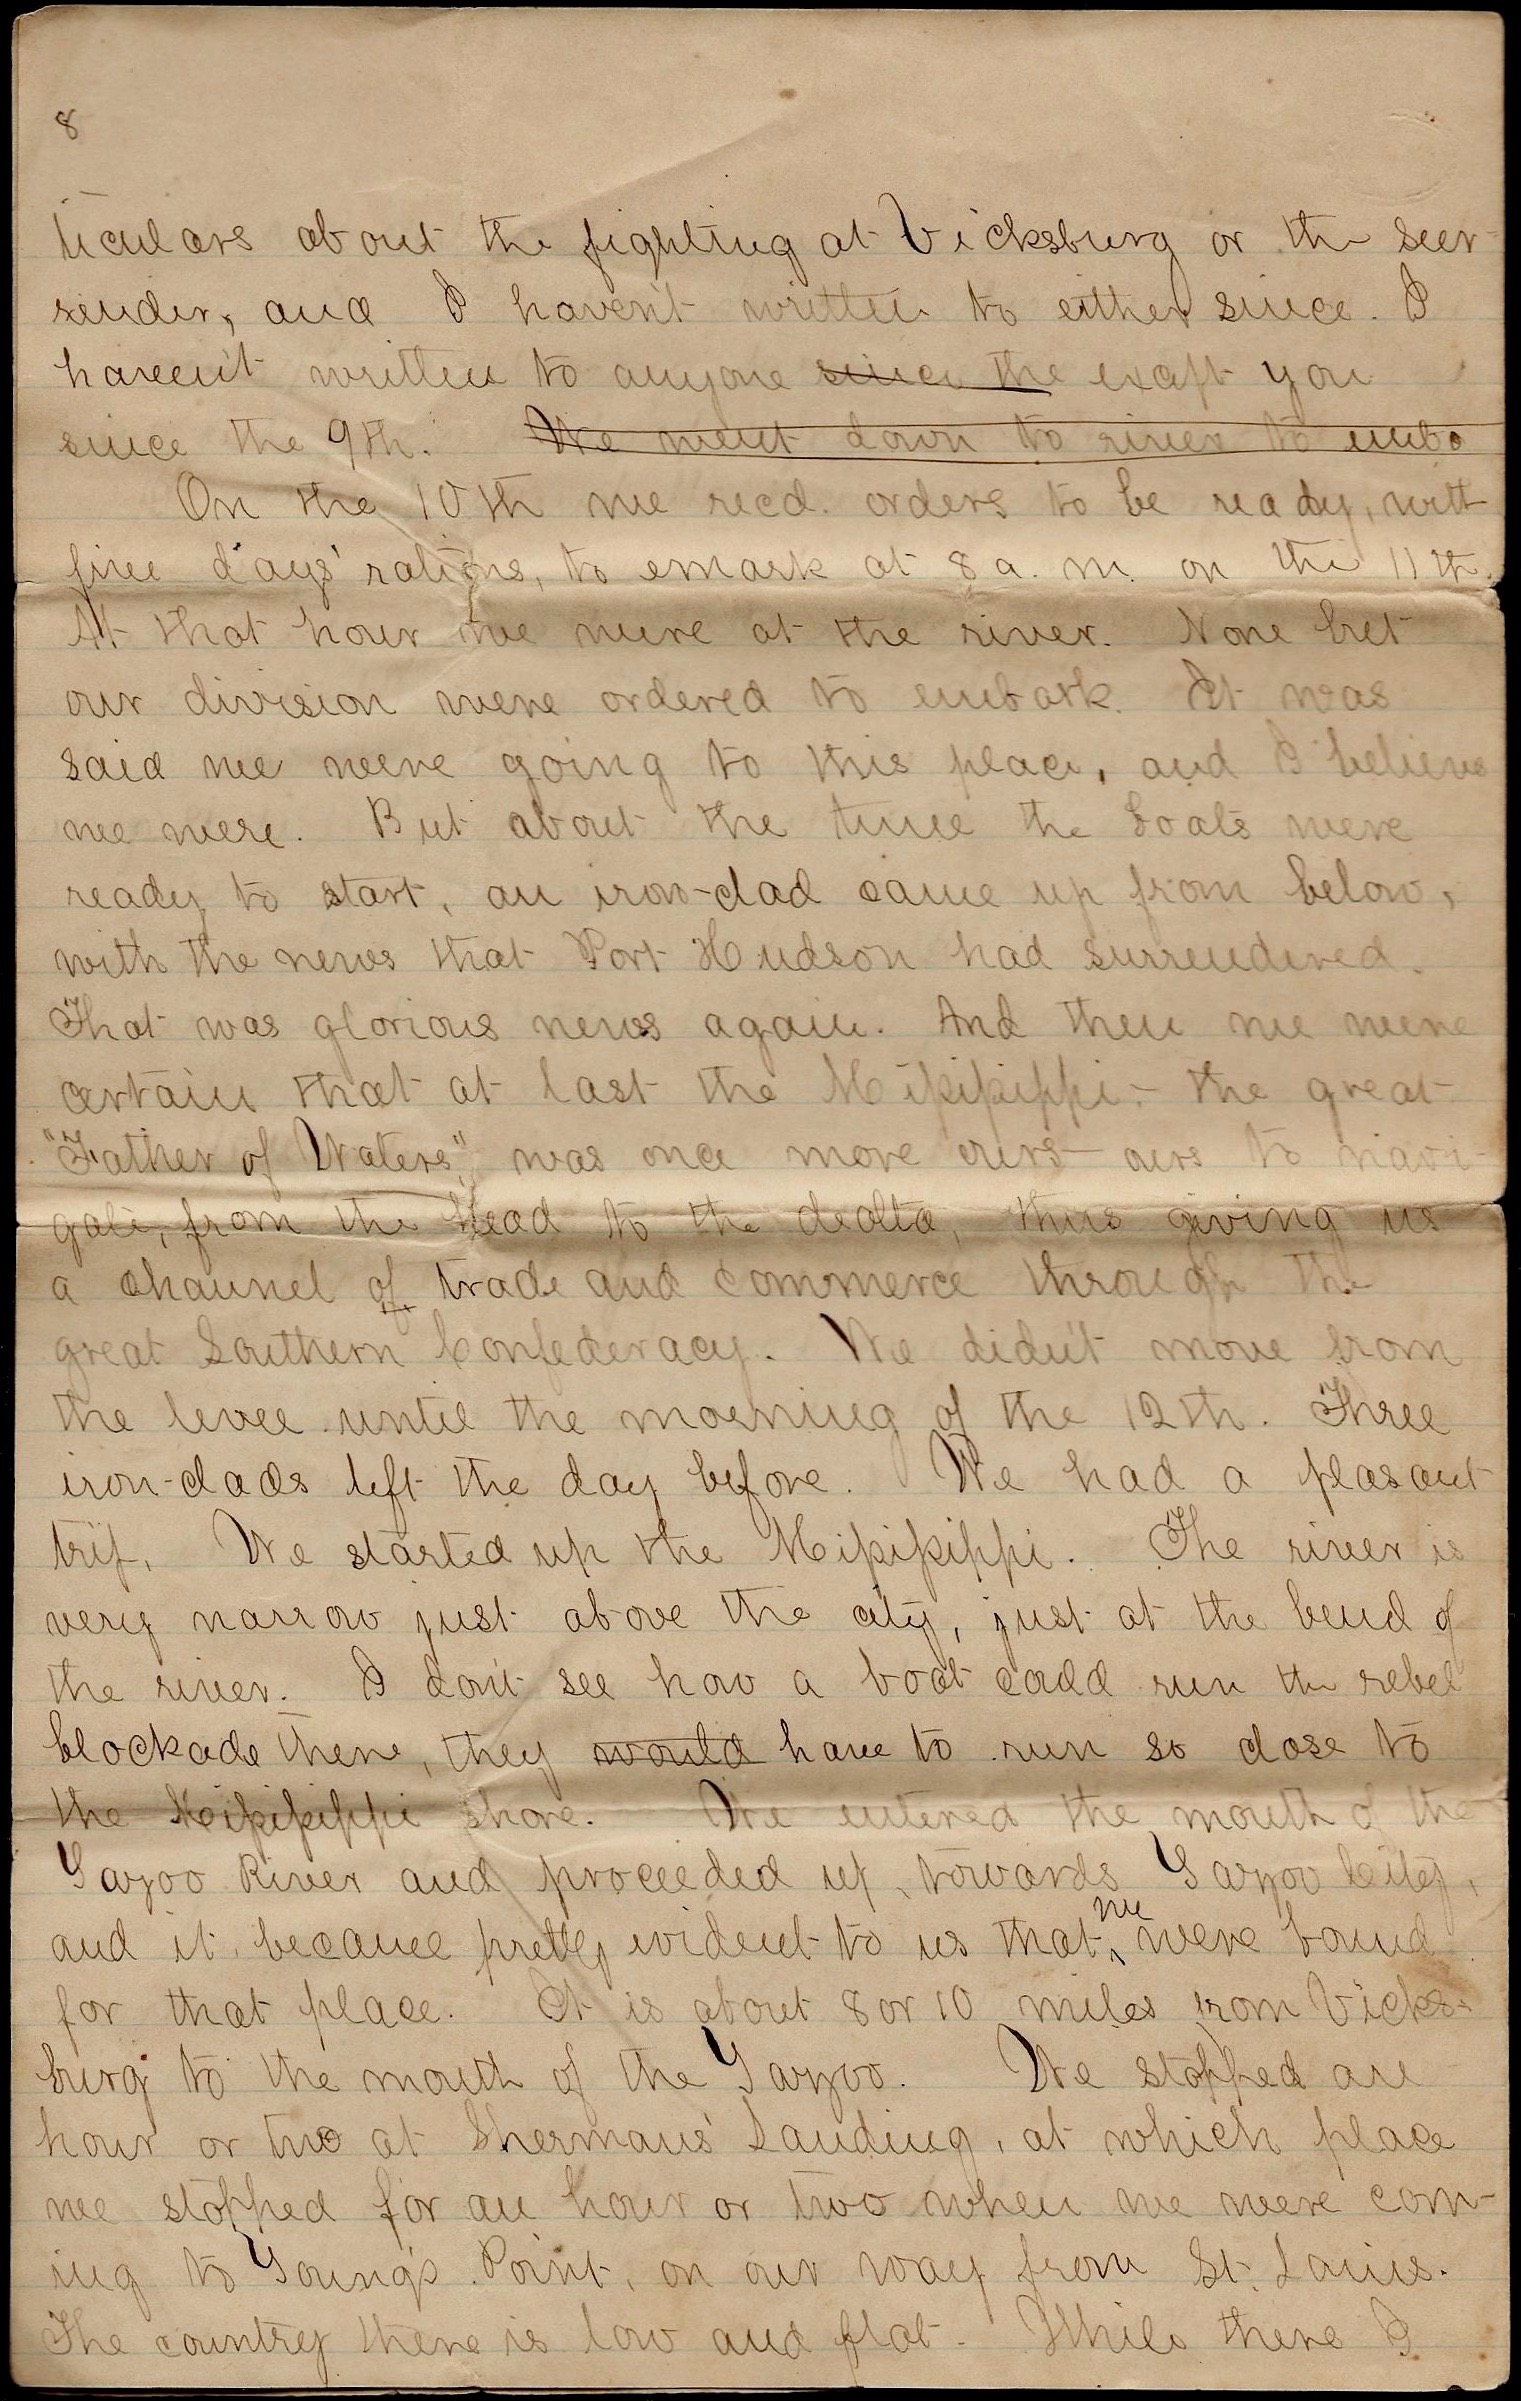 8
ticulars about the fighting at Vicksburg or the sur-
render, and I haven't written to either since. I
haven't written to anyone since the exept you
since the 9th. We went down to river to emba
On the 10th we recd. orders to be ready, with
five days' rations, to emark at 8 a. m. on the 11th.
At that hour we were at the river. None but
our division were ordered to embark. It was
said we were going to this place, and I believe
we were. But about the time the boats were
ready to start, an iron-clad came up from below,
with the news that Port Hudson had surrendered.
That was glorious news again. And then we were
certain that at last the Mississippi - the great
"Father of Waters", was once more ours - ours to navi-
gate, from the head to the dealta, thus giving us
a channel of trade and commerce through the
great Southern Confederacy. We didn't move from
the levee until the morning of the 12th. Three
iron-clads left the day before. We had a plasant
trip. We started up the Mississippi. The river is
very narrow just above the city, just at the bend of
the river. I don't see how a boat could run the rebel
blockade there, they would have to run so close to
the Mississippi shore. We entered the mouth of the
Yazoo River and proceeded up, towards Yazoo City,
and it became pretty evident to us that we were bound
for that place. It is about 8 or 10 miles from Vicks-
burg to the mouth of the Yazoo. We stopped an
hour or two at Shermans' Landing, at which place
we stopped for an hour or two when we were com-
ing to Young's Point, on our way from St. Louis.
The country there is low and flat. While there I